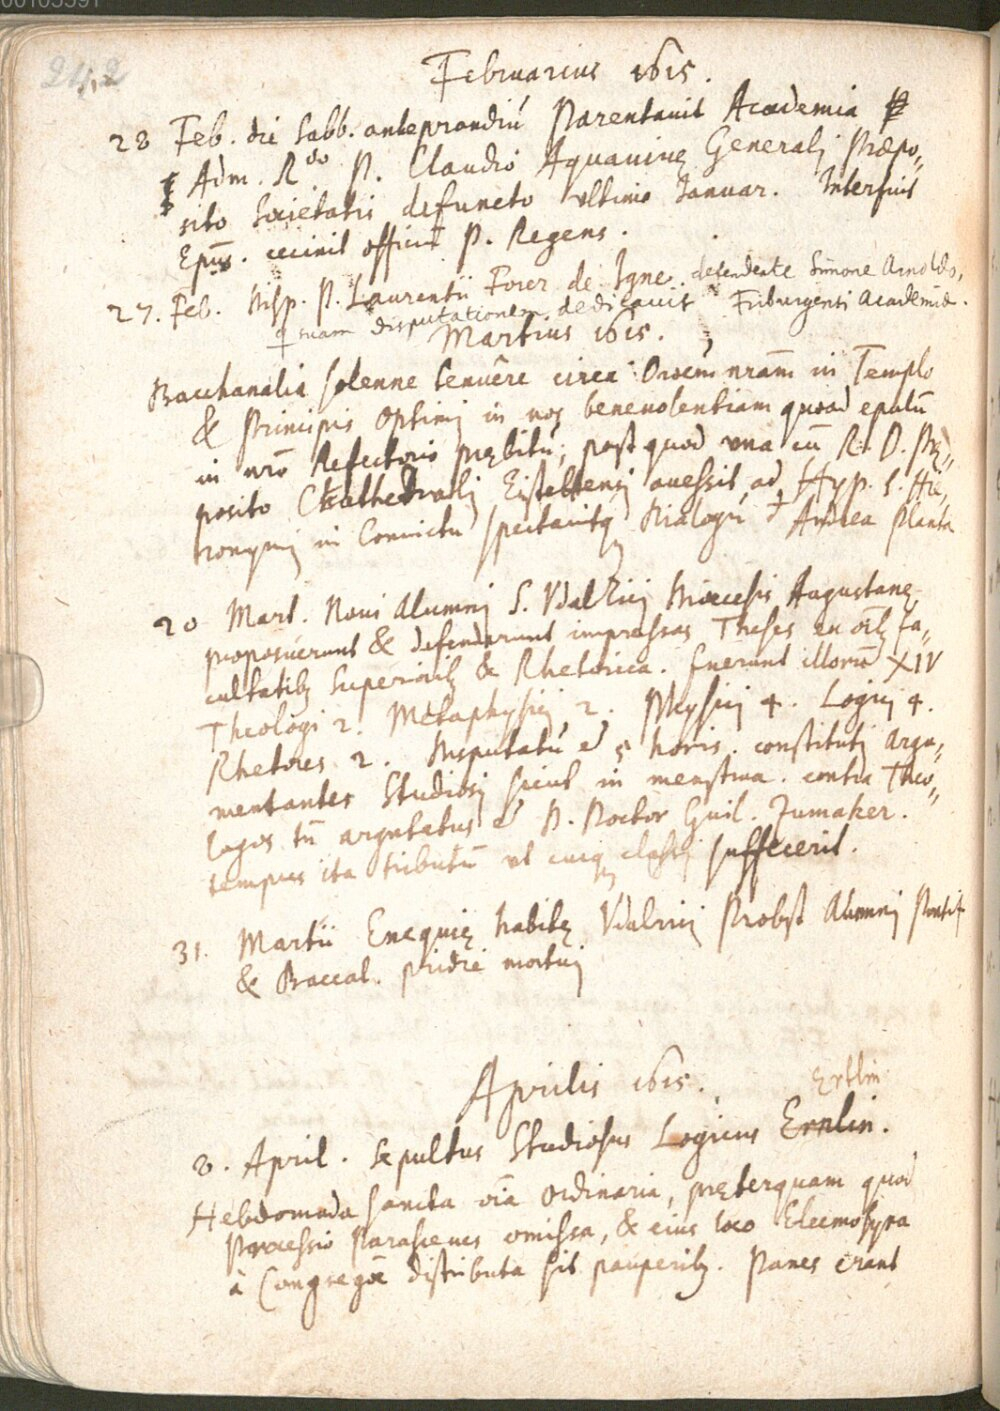 00103391
242
Februarius 1615.
28 Feb. die Sabb. anteprandiū Parentavit Academia
Adm. Rdo P. Claudio Aquavivę Generali Præpo„
sito Societatis defuncto ultimo Januar. Interfuit
Epūs. cecinit officiū P. Regens.
27. Feb. Disp. P. Laurentii Forer de Igne defendente Simone Arnoldo,
suam disputationem dedicavit Friburgensi Academiæ.
Martius 1615.
Bacchanalia solenne tenuêre circa Orōem nrām in Templo
& Principis Optimi in nos benevolentiam quoad epulū
in nrō Refectorio prębitū; post quod una cū R. D. Prę„
posito Cathedrali Eistettensi avessit ad Hyp. S. Hie„
ronymi in Convictu spectavitq Dialogū d Andrea Planta
20 Mart. Novi Alumni S. Vdalrici Diœcesis Augustanę
proposuerunt & defenderunt impressas Theses ex oīb fa„
cultatib Superiorib & Rhetorica. fuerunt illorū XIV
Theologi 2. Metaphysici 2. Physici 4. Logici 4.
Rhetores 2. Disputatū ē 5 horis. constituti argu„
mentantes Studiosi sicut in menstrua. contra Theo„
logos tū argutatus ē P. Doctor Guil. Jumaker.
tempus ita tributū ut cuiq classi suffecerit.
31. Martii Exequię habitę Vdalrici Probst Alumni Pontif
& Baccal. pridie mortui
Aprilis 1615.
Ertlin
2. April. Sepultus Studiosus Logicus Ernlin.
Hebdomada sancta oīa ordinaria, pręterquam quod
Processio Parasceves omissa, & eius loco Eleemosyna
à Congregōe distributa sit pauperib. Panes erant